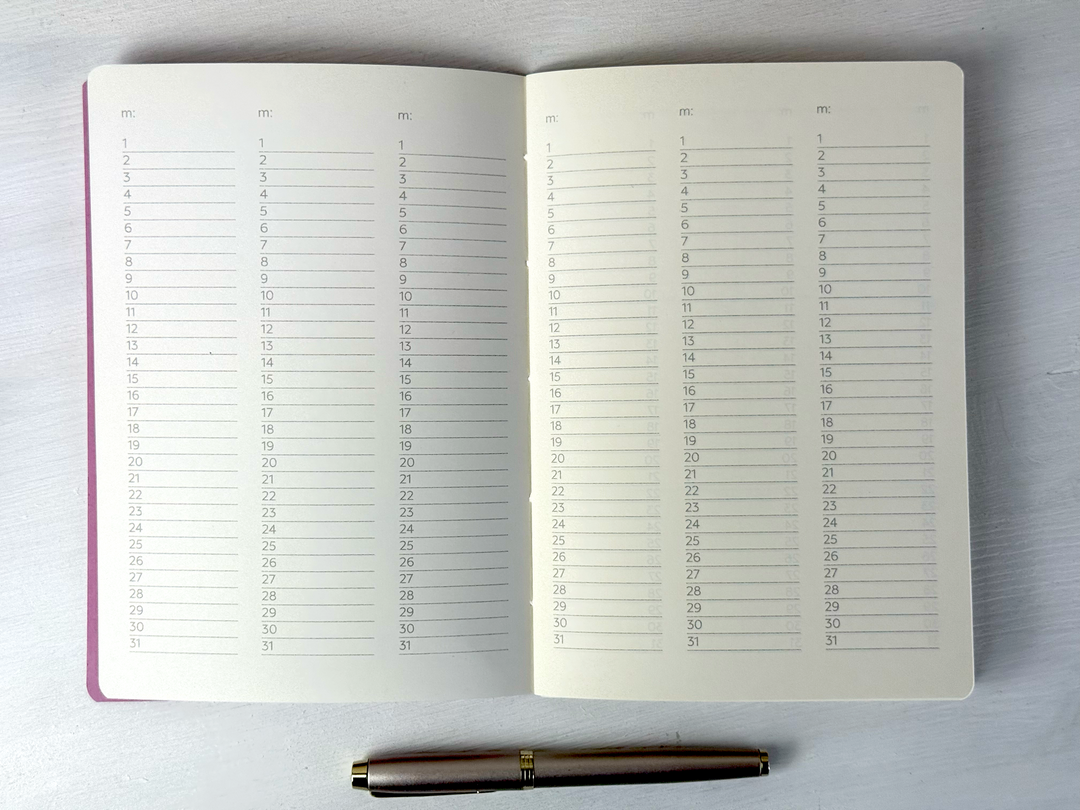 m: m: m: m: m: m:
1 1 1 1 1 1
2 2 2 2 2 2
3 3 3 3 3 3
4 4 4 4 4 4
5 5 5 5 5 5
6 6 6 6 6 6
7 7 7 7 7 7
8 8 8 8 8 8
9 9 9 9 9 9
10 10 10 10 10 10
11 11 11 11 11 11
12 12 12 12 12 12
13 13 13 13 13 13
14 14 14 14 14 14
15 15 15 15 15 15
16 16 16 16 16 16
17 17 17 17 17 17
18 18 18 18 18 18
19 19 19 19 19 19
20 20 20 20 20 20
21 21 21 21 21 21
22 22 22 22 22 22
23 23 23 23 23 23
24 24 24 24 24 24
25 25 25 25 25 25
26 26 26 26 26 26
27 27 27 27 27 27
28 28 28 28 28 28
29 29 29 29 29 29
30 30 30 30 30 30
31 31 31 31 31 31